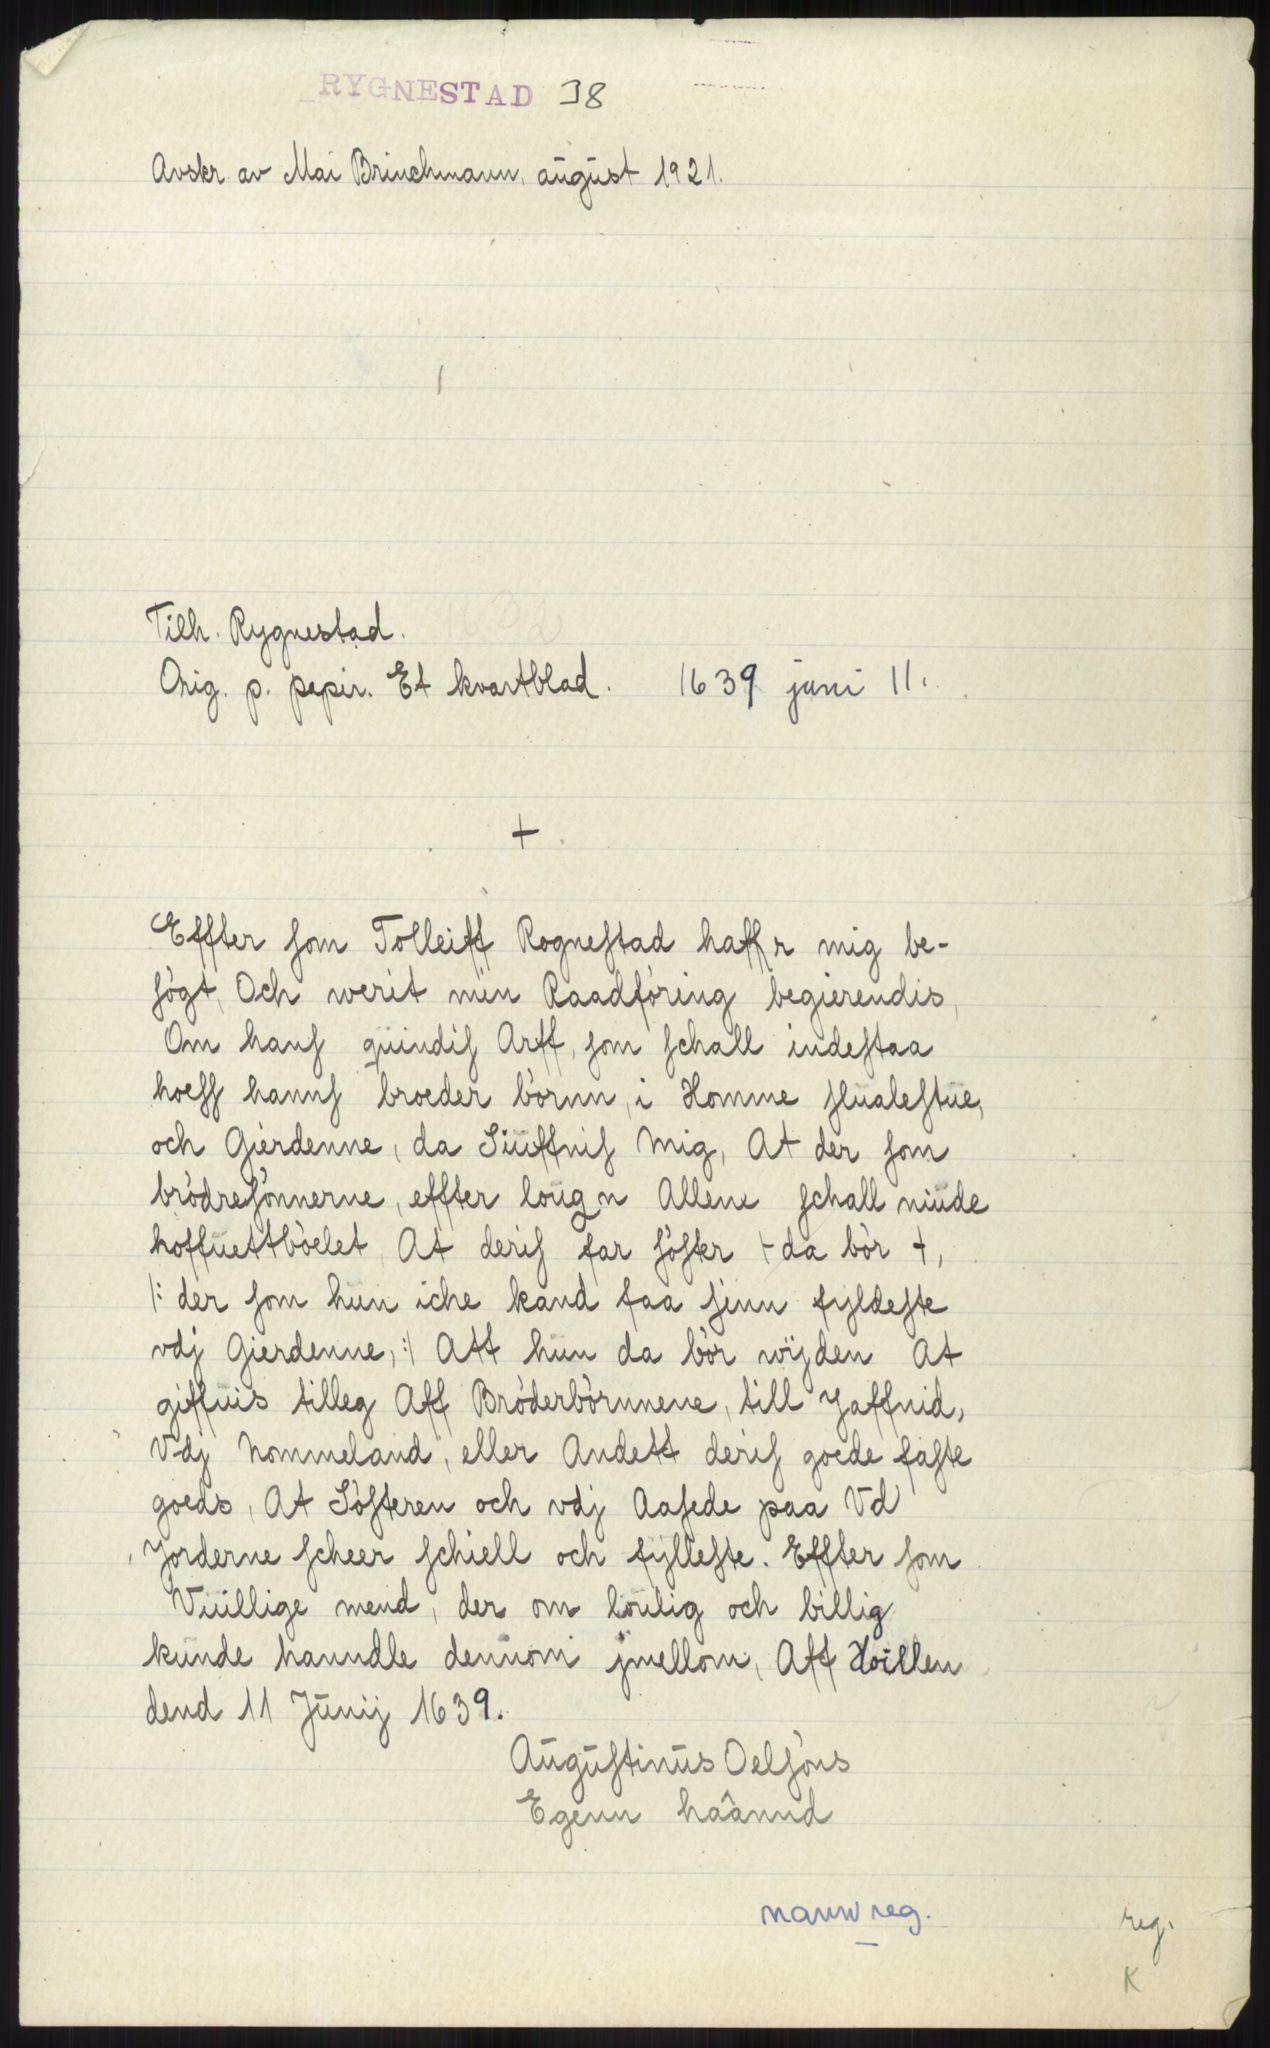 RYGNESTAD 38
Avskr. av Mai Brinchmann, august 1921.
Tilh. Rygnestad.
Orig. p. papir. Et kvartblad. 1639 juni 11.
+
Effter som Tolleiff Rognestad haffr mig be-
søgt, Och werit min Raadføring begierendis,
Om hans quindis Arff, som schall indestaa
hoess hanns broeder børnn, i Homme
och Gierdenne, da Siuffnis Mig, At der som
brødresønnerne, effter lougn Allene schall niude
hoffuettbøelet, At deris far søster + da bør +,
/: der som hun iche kand faa sinn fyldeste
vdj Gierdenne, :/ Att hun da bør wijden At
giffuis tilleg Aff Brøderbørnnene, till Jaffnid,
Vdj Nommeland, eller Andett deris goede faste
goeds, At Søsteren och vdj Aasede paa Vd
Jorderne scheer schiell och fylleste. Effter som
Vuillige mend, der om loulig och billig
kunde hanndle dennom jmellom, Aff Hoillen
dend 11 Junij 1639.
Augustinus Oelsøns
Egenn haannd
navnreg.
reg.
K